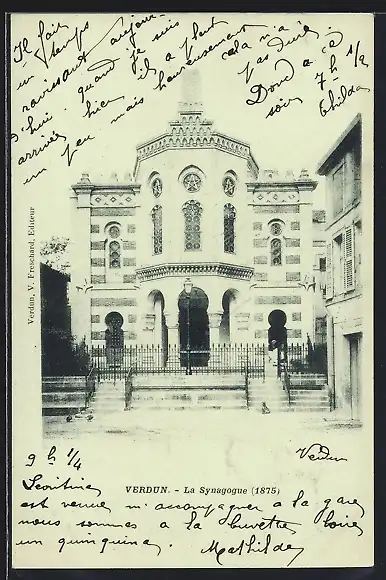 Il fait
un temps
ravissant aujour-
d'hui. quand je suis
arrivée hier il a plut
un peu mais heureusement
cela n'a
pas duré.
Donc a ce
soir 7h 1/2
Thilda
Verdun, V. Freschard, Editeur
9h 1/4
Verdun
VERDUN. - La Synagogue (1875)
est venue m'accompagner à la gare
nous sommes a la buvette boire
un quinquina.
Mathilde